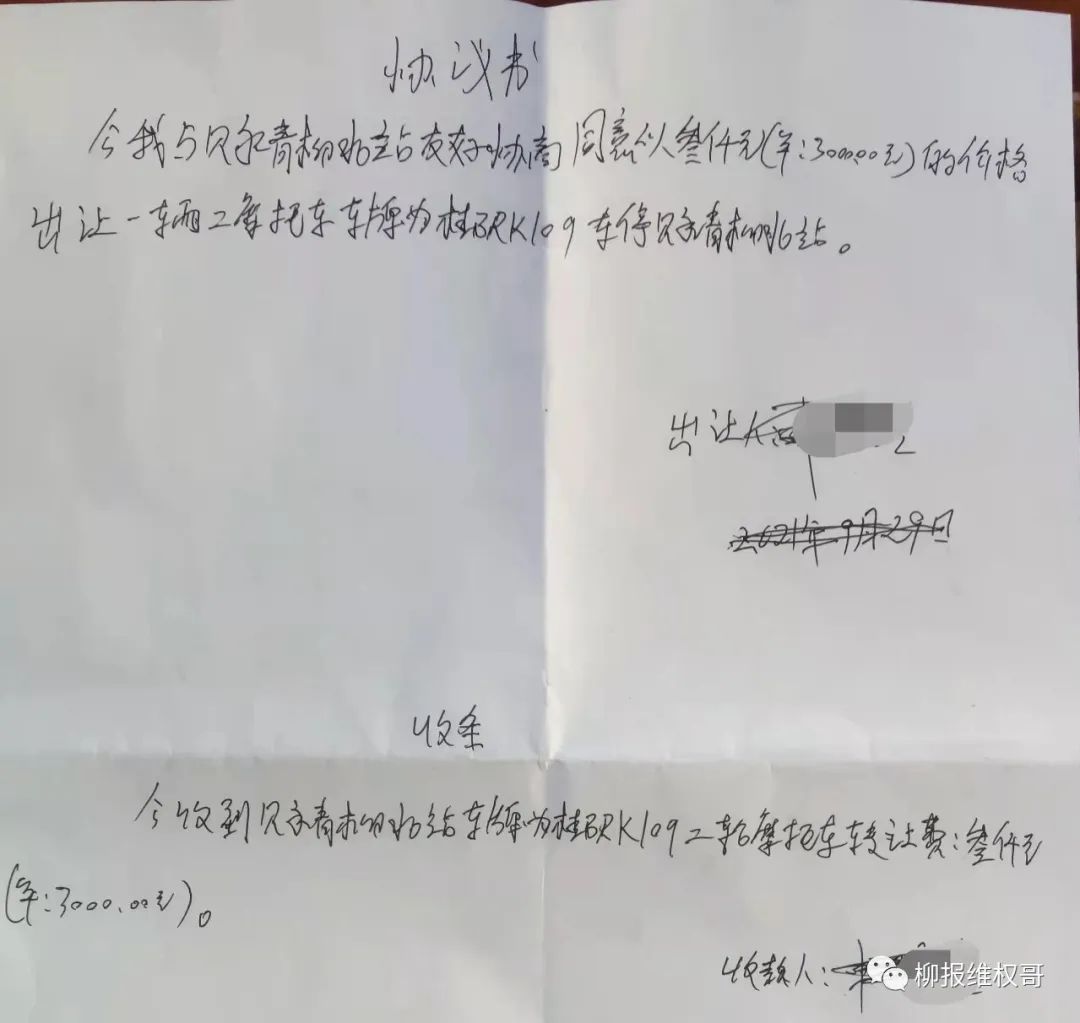 协议书
今我与贝永青柳水站友好协商同意以叁仟元(¥:3000.00元)的价格
出让一辆二摩托车车牌为桂BRK109车停贝永青柳水站。
出让人
2021年9月29日
收条
今收到贝永青柳水站车牌为桂BRK109二轮摩托车转让费:叁仟元
(¥:3000.00元)。
收款人:
柳报维权哥